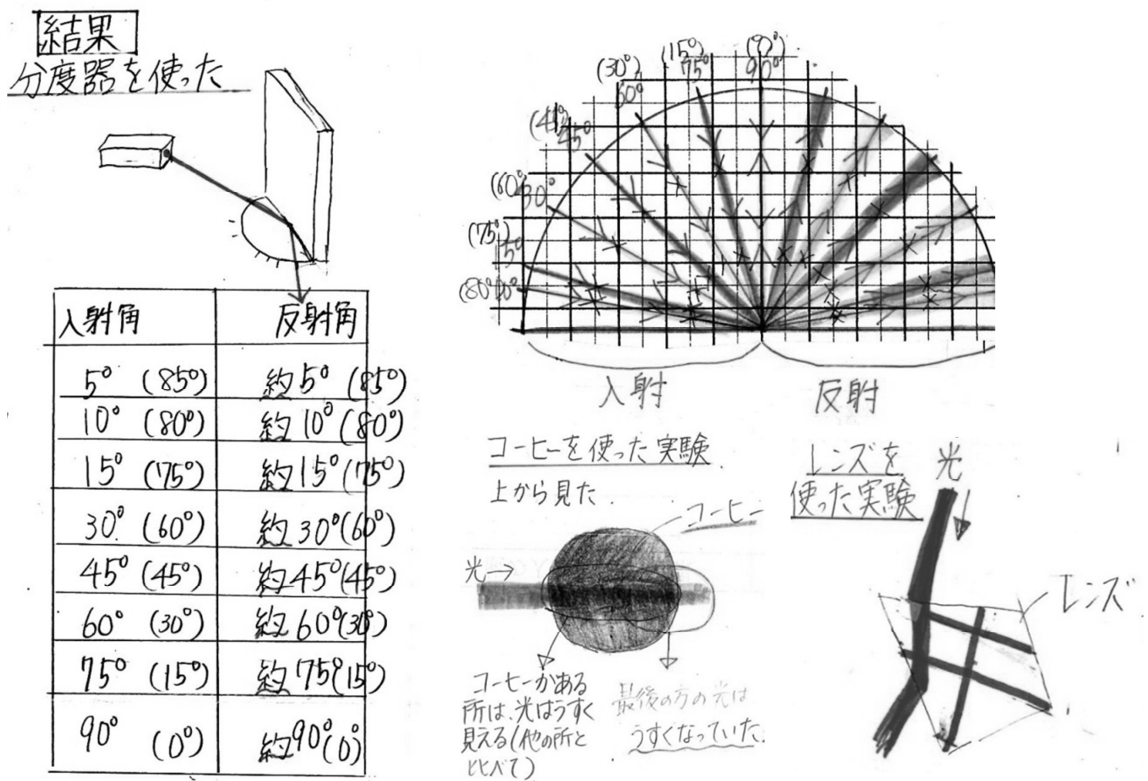 結果
分度器を使った
入射角 反射角
5° (85°) 約5° (85°)
10° (80°) 約10° (80°)
15° (75°) 約15° (75°)
30° (60°) 約30° (60°)
45° (45°) 約45° (45°)
60° (30°) 約60° (30°)
75° (15°) 約75° (15°)
90° (0°) 約90° (0°)
(0°)
90°
(15°)
75°
(30°)
60°
(45°)
45°
(60°)
30°
(75°)
15°
(80°) 10°
入射
反射
コーヒーを使った実験
上から見た
コーヒー
光→
コーヒーがある
所は、光はうすく
見える(他の所と
比べて)
最後の方の光は
うすくなっていた.
レンズを
使った実験
光
レンズ